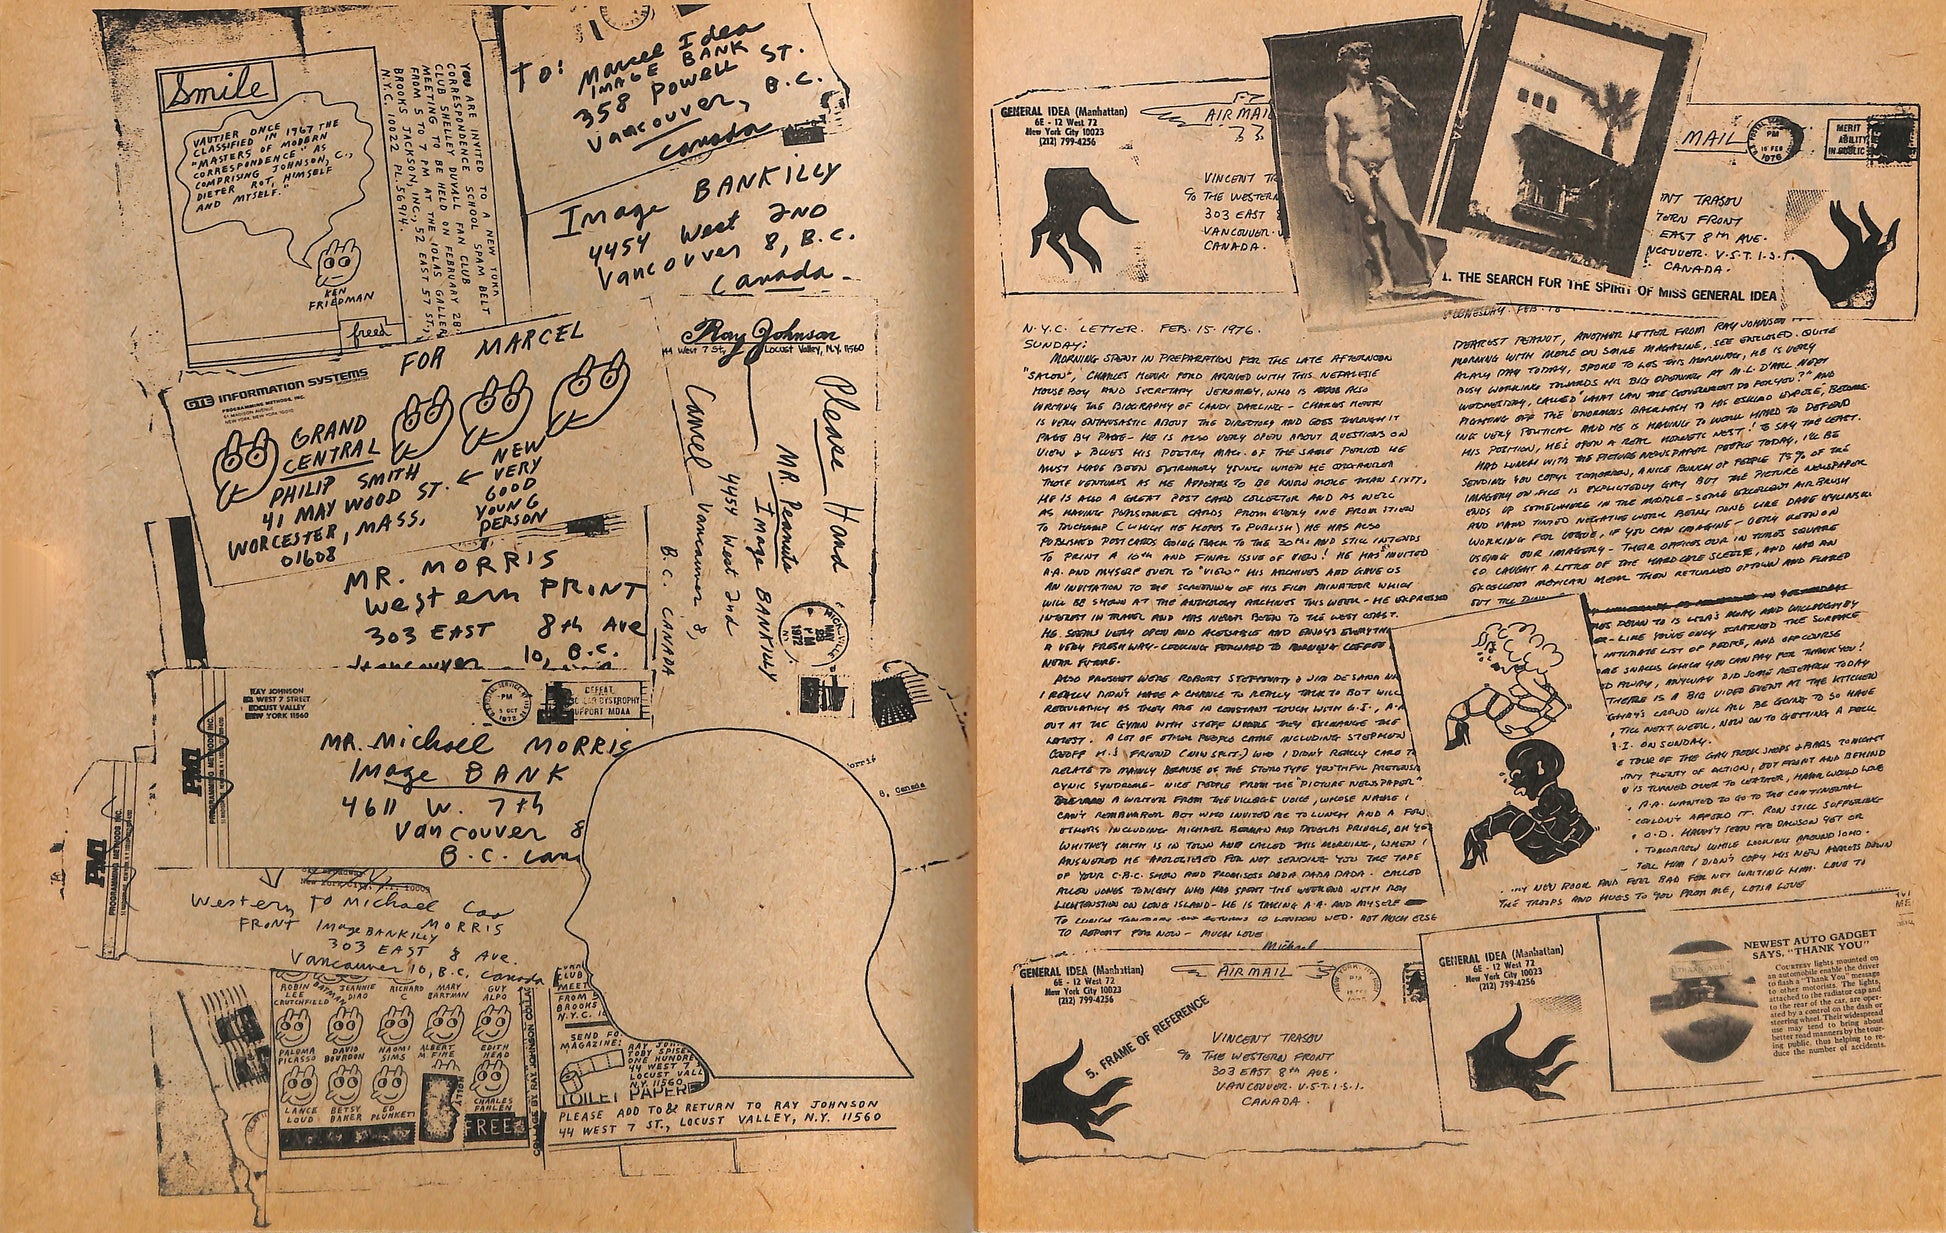 Smile
VAUTIER ONCE
CLASSIFIED IN 1967 THE
"MASTERS OF MODERN
CORRESPONDENCE" AS
COMPRISING JOHNSON, C.,
DIETER ROT, HIMSELF
AND MYSELF."
KEN
FRIEDMAN
freed
YOU ARE INVITED TO A NEW YORK
CORRESPONDENCE SCHOOL SPAM BELT
CLUB SHELLEY DUVALL FAN CLUB
MEETING TO BE HELD ON FEBRUARY 28
FROM 5 TO 7 PM AT THE IOLAS GALLERY
BROOKS JACKSON, INC., 52 EAST 57 ST.,
N.Y.C. 10022 PL.56914.
TO: Marcel Idea
IMAGE BANK
358 POWELL ST.
Vancouver, B.C.
Canada
Image BANKILLY
4454 West 2ND
Vancouver 8, B.C.
Canada
FOR MARCEL
GTE INFORMATION SYSTEMS
PROGRAMMING METHODS, INC.
GRAND
CENTRAL
PHILIP SMITH
41 MAY WOOD ST.
WORCESTER, MASS.
01608
← NEW
VERY
GOOD
YOUNG
PERSON
Ray Johnson
44 West 7 St, Locust Valley, N.Y. 11560
Please Hand
Cancel
MR. Peanuts
Image BANKILLY
4454 West 2nd
Vancouver 8,
B.C. CANADA
MR. MORRIS
Western PRINT
303 EAST 8th Ave
Vancouver 10, B.C.
RAY JOHNSON
44 WEST 7 STREET
LOCUST VALLEY
NEW YORK 11560
DEFEAT
SUPPORT MDAA
PMI
PROGRAMMING METHODS INC.
MR. Michael MORRIS
Image BANK
4611 W. 7th
Vancouver 8
B.C. Cana
orris
8, Canada
PMI
PROGRAMMING METHODS INC.
Western TO Michael
FRONT Image BANKILLY MORRIS
303 EAST 8 Ave.
Vancouver 10, B.C. Canada
ROBIN LEE CRUTCHFIELD
BATMAN
JEANNIE DIAO
RICHARD C
MARY BARTMAN
GUY ALPO
PALOMA PICASSO
DAVID BOURDON
NAOMI SIMS
ALBERT M. FINE
EDITH HEAD
LANCE LOUD
BETSY BAKER
ED PLUNKETT
CHARLES FAHLEN
FREE
COLLAGE BY RAY JOHNSON
CLUB
MEET
FROM 5
BROOKS
N.Y.C. 1
SEND FO
MAGAZINE:
RAY JOH
TOBY SPISE
ONE HUNDRE
44 WEST 7
LOCUST VALL
N.Y. 11560
TOILET PAPER
PLEASE ADD TO & RETURN TO RAY JOHNSON
44 WEST 7 ST., LOCUST VALLEY, N.Y. 11560
GENERAL IDEA (Manhattan)
6E - 12 West 72
New York City 10023
(212) 799-4256
AIR MAIL
VINCENT TR
c/o THE WESTERN
303 EAST 8
VANCOUVER.
CANADA.
MAIL
MERIT
ABILITY
IN PUBLIC
NT TRASOV
TERN FRONT
EAST 8TH AVE.
NCOUVER. V.5.T. 1.S.1.
CANADA.
1. THE SEARCH FOR THE SPIRIT OF MISS GENERAL IDEA
N.Y.C. LETTER. FEB. 15. 1976.
SUNDAY:
MORNING SPENT IN PREPARATION FOR THE LATE AFTERNOON
"SALON", CHARLES HENRI FORD ARRIVED WITH THIS NEPALESE
HOUSE BOY AND SECRETARY JEROMEY, WHO IS ALSO
WRITING THE BIOGRAPHY OF CANDI DARLING - CHARLES HENRI
IS VERY ENTHUSIASTIC ABOUT THE DIRECTORY AND GOES THROUGH IT
PAGE BY PAGE - HE IS ALSO VERY OPEN ABOUT QUESTIONS ON
VIEW + BLUES HIS POETRY MAG. OF THE SAME PERIOD HE
MUST HAVE BEEN EXTREMELY YOUNG WHEN HE ORGANIZED
THOSE VENTURES AS HE APPEARS TO BE KNOW MORE THAN SIXTY,
HE IS ALSO A GREAT POST CARD COLLECTOR AND AS WELL
AS HAVING PERSONNEL CARDS FROM EVERY ONE FROM STIEN
TO DUCHAMP (WHICH HE HOPES TO PUBLISH) HE HAS ALSO
PUBLISHED POSTCARDS GOING BACK TO THE 30TH. AND STILL INTENDS
TO PRINT A 10TH AND FINAL ISSUE OF VIEW! HE HAS INVITED
A.A. AND MYSELF OVER TO "VIEW" HIS ARCHIVES AND GAVE US
AN INVITATION TO THE SCREENING OF HIS FILM MINATOUR WHICH
WILL BE SHOWN AT THE ANTHOLOGY ARCHIVES THIS WEEK - HE EXPRESSED
INTEREST IN TRAVEL AND HAS NEVER BEEN TO THE WEST COAST.
HE SEEMS VERY OPEN AND ACCESSABLE AND ENJOYS EVERYTH
A VERY FRESH WAY - LOOKING FORWARD TO MORNING COFFEE
NEAR FUTURE.
ALSO PRESENT WERE ROBERT STEFFONITY & JIM DE SANA WH
I REALLY DIDN'T HAVE A CHANCE TO REALLY TALK TO BOT WILL
REGULARITY AS THEY ARE IN CONSTANT TOUCH WITH G.I., A.A
OUT AT THE GYMN WITH STEFF WHERE THEY EXCHANGE THE
LATEST. A LOT OF OTHER PEOPLE CAME INCLUDING STEPHEN
FRIEND WHO I DIDN'T REALLY CARE TO
RELATE TO MAINLY BECAUSE OF THE STEREOTYPE YOUTHFUL PRETENSI
CYNIC SYNDROME - NICE PEOPLE FROM THE "PICTURE NEWSPAPER"
A WRITER FROM THE VILLAGE VOICE, WHOSE NAME I
CAN'T REMEMBER BOT WHO INVITED ME TO LUNCH AND A FEW
OTHERS INCLUDING MICHAEL BERMAN AND DOUGLAS PRINGLE, OH YES
WHITNEY SMITH IS IN TOWN AND CALLED THIS MORNING, WHEN I
ANSWERED HE APOLOGIZED FOR NOT SENDING YOU THE TAPE
OF YOUR C.B.C. SHOW AND PROMISSES DADA DADA DADA. CALLED
ALLEN JONES TONIGHT WHO HAD SPENT THE WEEKEND WITH ROY
LICHTENSTEIN ON LONG ISLAND - HE IS TAKING A.A. AND MYSELF
TO LUNCH TOMORROW AND RETURNS TO LONDON WED. NOT MUCH ELSE
TO REPORT FOR NOW - MUCH LOVE
Michael
WEDNESDAY. FEB. 18
DEAREST PEANUT, ANOTHER LETTER FROM RAY JOHNSON
MORNING WITH MORE ON SMILE MAGAZINE, SEE ENCLOSED. QUITE
A LAZY DAY TODAY, SPOKE TO LES THIS MORNING, HE IS VERY
BUSY WORKING TOWARDS HIS BIG OPENING AT M.L. D'ARC NEXT
WEDNESDAY, CALLED "WHAT CAN THE GOVERNMENT DO FOR YOU?" AND
FIGHTING OFF THE ENORMOUS BACKLASH TO HIS ESKIMO EXPOSE, BECOM-
ING VERY POLITICAL AND HE IS HAVING TO WORK HARD TO DEFEND
HIS POSITION, HE'S OPEN A REAL HORNETS NEST! TO SAY THE LEAST.
HAD LUNCH WITH THE PICTURE NEWSPAPER PEOPLE TODAY, I'LL BE
SENDING YOU COPYS TOMORROW, A NICE BUNCH OF PEOPLE 75% OF THE
IMAGERY ON FILE IS EXPLICTEDLY GAY BUT THE PICTURE NEWSPAPER
ENDS UP SOMEWHERE IN THE MIDDLE - SOME EXCELLENT AIR BRUSH
AND HAND TINTED NEGATIVE WORK BEING DONE LIKE DAVE
WORKING FOR VOGUE, IF YOU CAN IMAGINE - VERY KEEN ON
USEING OUR IMAGERY - THEIR OFFICES OUR IN TIMES SQUARE
SO CAUGHT A LITTLE OF THE HARD CORE SLEEZE, AND HAD AN
EXCELLENT MEXICAN MEAL THEN RETURNED UPTOWN AND FLARED
OUT TILL DINN
LIKE YOU'VE ONLY SCRATCHED THE SURFACE
INTIMATE LIST OF PEOPLE, AND OFF COURSE
SNACKS WHICH YOU CAN PAY FOR THANK YOU!
AWAY, ANYWAY DID SOME RESEARCH TODAY
THERE IS A BIG VIDEO EVENT AT THE KITCHEN
CROWD WILL ALL BE GOING TO SO HAVE
TILL NEXT WEEK, NOW ON TO GETTING A
.I. ON SUNDAY.
A TOUR OF THE GAY BOOK SHOPS & BARS TONIGHT
PLENTY OF ACTION, BOT FRONT AND BEHIND
IS TURNED OVER TO LEATHER, HANK WOULD LOVE
. A.A. WANTED TO GO TO THE CONTINENTAL
COULDN'T AFFORD IT. RON STILL SUFFERING
O.D. HAVEN'T SEEN DAWSON YET OR
TOMORROW WHILE LOOKING AROUND SOHO.
TELL HIM I DIDN'T COPY HIS NEW ADDRESS DOWN
MY NEW BOOK AND FEEL BAD FOR NOT WRITING HIM. LOVE TO
THE TROOPS AND HUGS TO YOU FROM ME, LOTSA LOVE
GENERAL IDEA (Manhattan)
6E - 12 West 72
New York City 10023
(212) 799-4256
AIR MAIL
5. FRAME OF REFERENCE
VINCENT TRASOV
c/o THE WESTERN FRONT
303 EAST 8TH AVE.
VANCOUVER. V.5.T. 1.S.1.
CANADA.
GENERAL IDEA (Manhattan)
6E - 12 West 72
New York City 10023
(212) 799-4256
NEWEST AUTO GADGET
SAYS, "THANK YOU"
COURTESY lights mounted on
an automobile enable the driver
to flash a "Thank You" message
to other motorists. The lights,
attached to the radiator cap and
to the rear of the car, are oper-
ated by a control on the dash or
steering wheel. Their widespread
use may tend to bring about
better road manners by the tour-
ing public, thus helping to re-
duce the number of accidents.